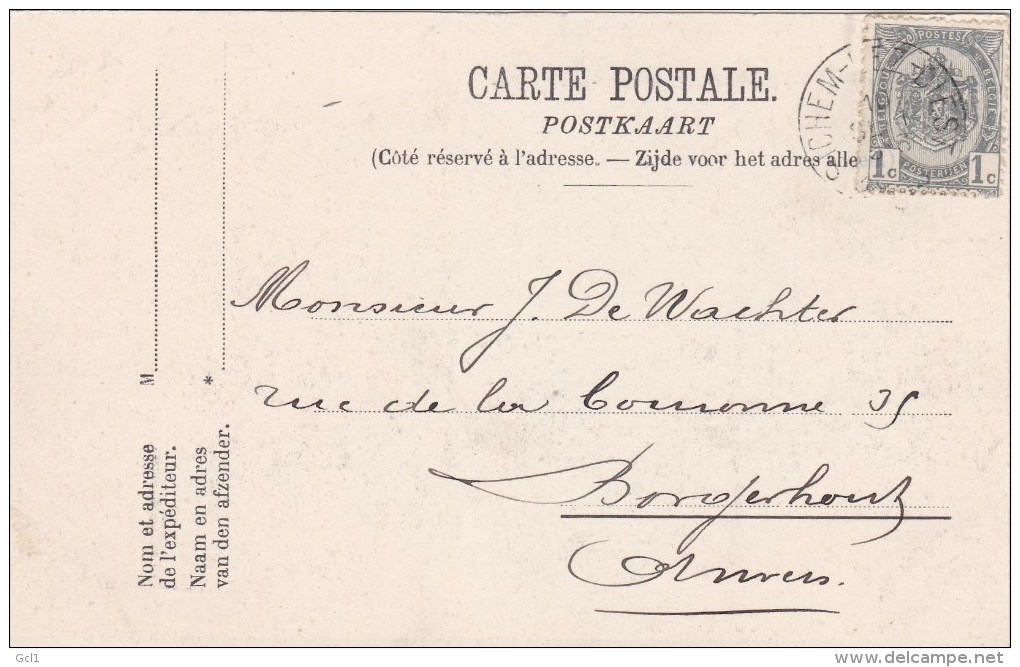 CARTE POSTALE.
POSTKAART
(Côté réservé à l'adresse. — Zijde voor het adres alle
POSTES
BELGIQUE BELGIË
POSTERIJEN
1c 1c
Monsieur J. De Wachter
rue de la Couronne 35
Borgerhout
Anvers.
M
*
Nom et adresse
de l'expéditeur.
Naam en adres
van den afzender.
Gcl1
www.delcampe.net